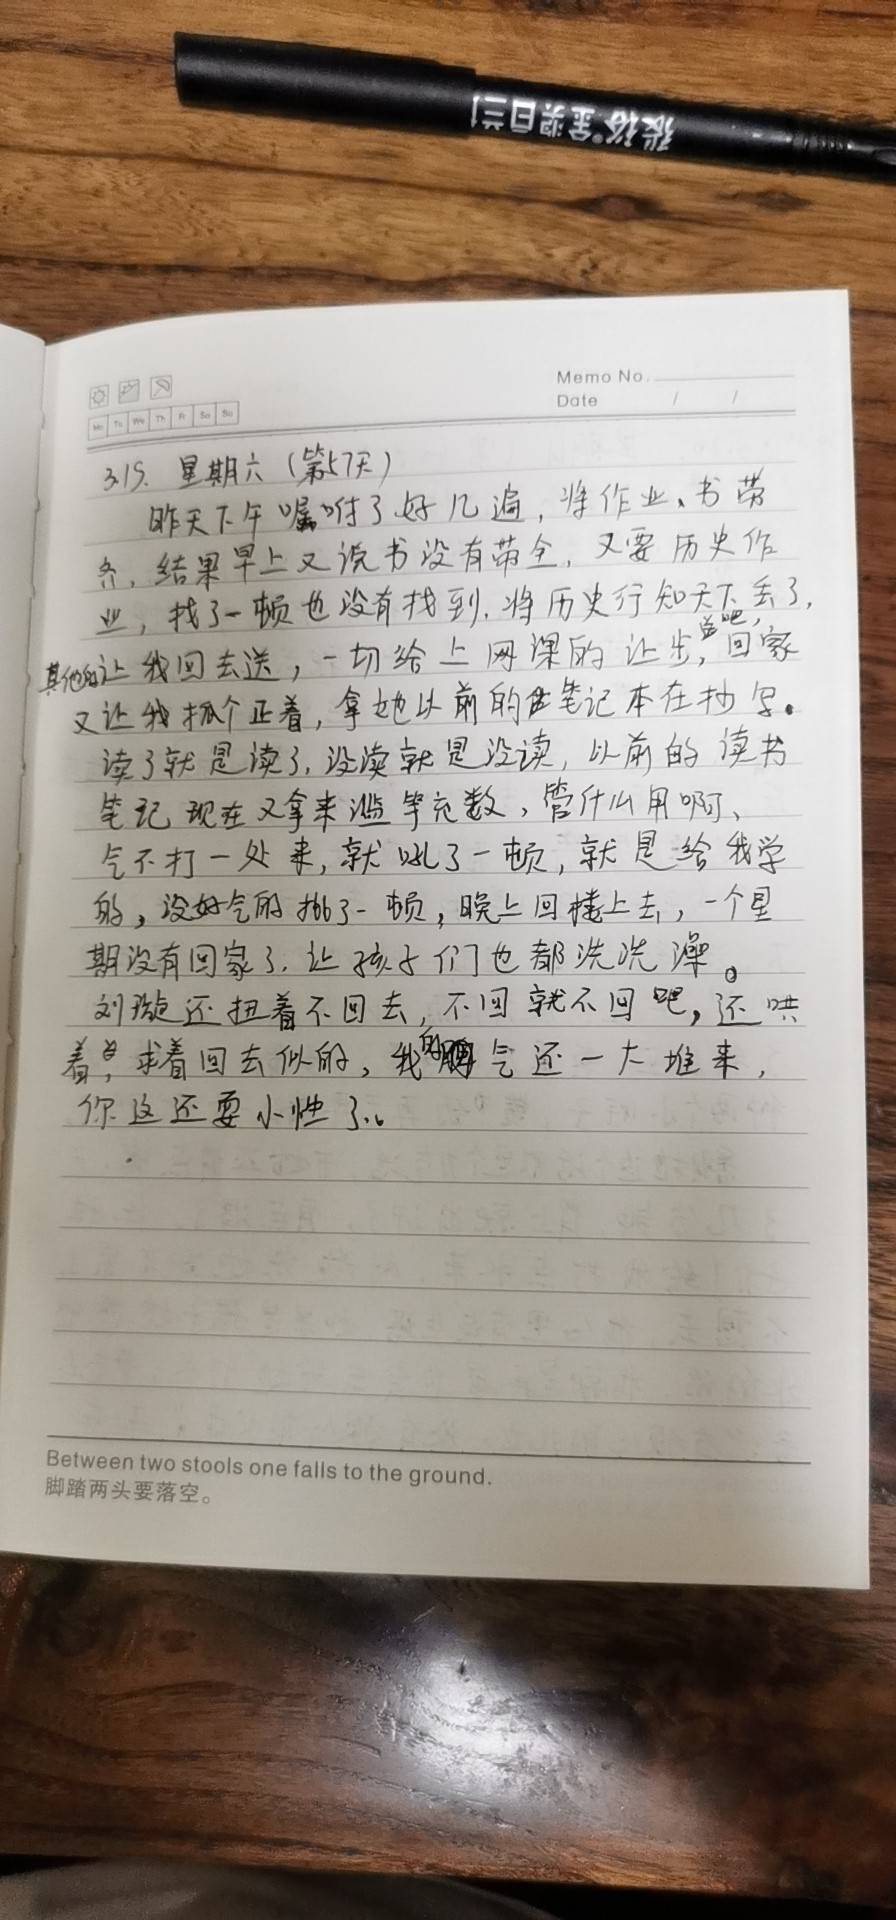 张裕®金奖白兰
Memo No.
Date / /
Mo Tu We Th Fr Sa Su
3.19. 星期六（第57天）
昨天下午嘱咐了好几遍，将作业、书带
齐，结果早上又说书没有带全，又要历史作
业，找了一顿也没有找到，将历史行知天下丢了，
其他的让我回去送，一切给上网课的让步，送吧，回家
又让我抓个正着，拿她以前的笔记本在抄写。
读了就是读了，没读就是没读，以前的读书
笔记现在又拿来滥竽充数，管什么用啊、
气不打一处来，就吼了一顿，就是给我学
的，没好气的挑了一顿，晚上回楼上去，一个星
期没有回家了，让孩子们也都洗洗澡。
刘璇还扭着不回去，不回就不回吧，还哄
着，求着回去似的，我的脾气还一大堆来，
你这还耍小性了。
Between two stools one falls to the ground.
脚踏两头要落空。